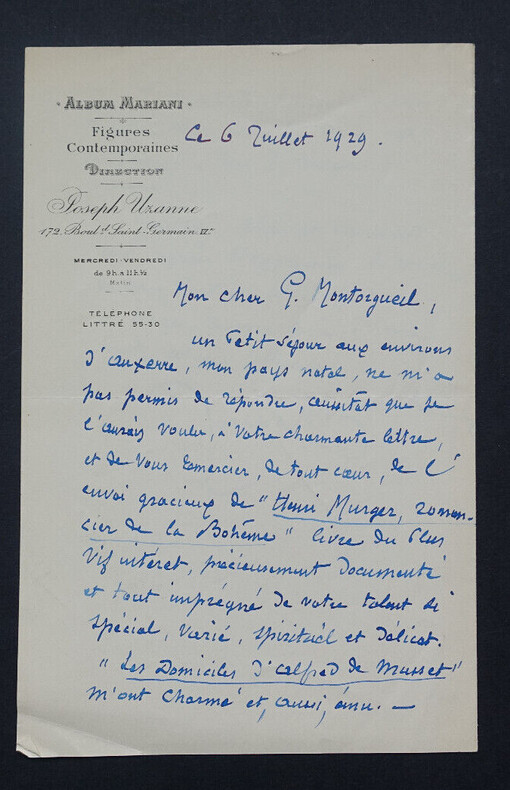 ALBUM MARIANI
Figures
Contemporaines
DIRECTION
Joseph Uzanne
172, Boul.d Saint-Germain, VI.e
MERCREDI - VENDREDI
de 9h. à 11h. ½
Matin
TÉLÉPHONE
LITTRÉ 55-30
Ce 6 Juillet 1929.
Mon cher G. Montorgueil,
un Petit Séjour aux environs
d'Auxerre, mon pays natal, ne m'a
pas permis de répondre, aussitôt que je
l'aurais voulu, à votre charmante lettre,
et de vous remercier, de tout cœur, de l'
envoi gracieux de "Henri Murger, roman-
cier de la Bohême" livre du Plus
Vif intéret, précieusement documenté
et tout imprégné de votre talent si
spécial, varié, spirituel et délicat.
"Les Domiciles d'Alfred de Musset"
m'ont charmé et, aussi, ému. —